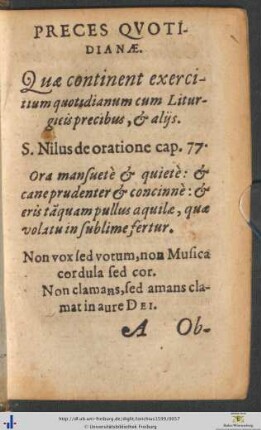 PRECES QVOTI-
DIANÆ.
Quæ continent exerci-
tium quotidianum cum Litur-
gicis precibus, & alijs.
S. Nilus de oratione cap. 77.
Ora mansuetè & quietè: &
cane prudenter & concinnè: &
eris tāquam pullus aquilæ, quæ
volatu in sublime fertur.
Non vox sed votum, non Musica
cordula sed cor.
Non clamans, sed amans cla-
mat in aure DEI.
A Ob-
© Universitätsbibliothek Freiburg